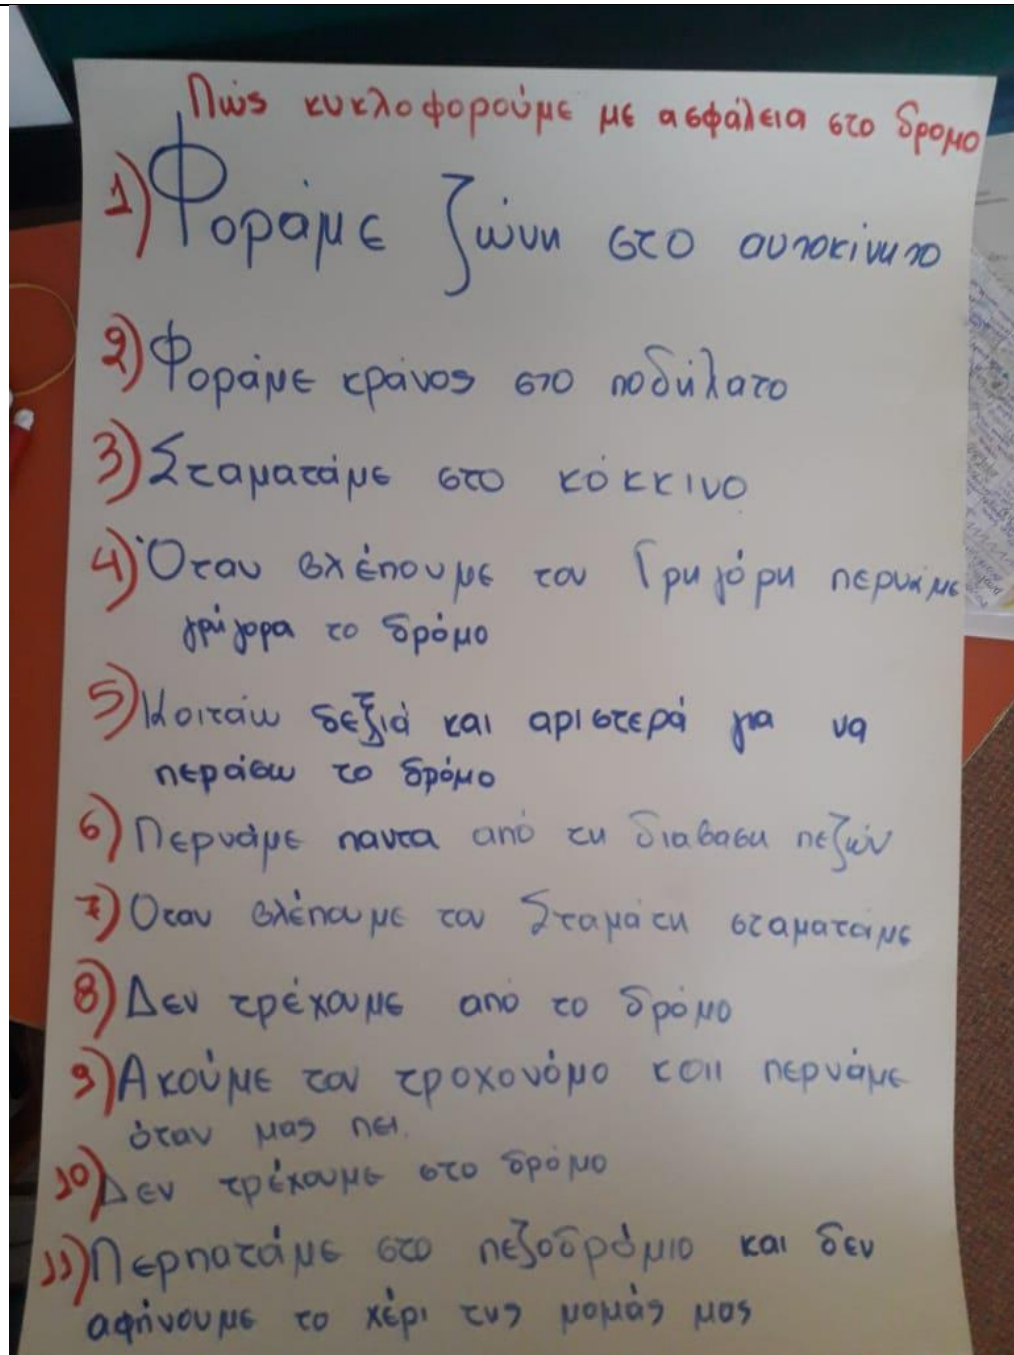 Πώς κυκλοφορούμε με ασφάλεια στο δρομο
1) Φοράμε ζώνη στο αυτοκίνητο
2) Φοράμε κράνος στο ποδήλατο
3) Σταματάμε στο κόκκινο
4) Όταν βλέπουμε τον Γρηγόρη περνάμε
γρήγορα το δρόμο
5) Κοιτάω δεξιά και αριστερά για να
περάσω το δρόμο
6) Περνάμε παντα από τη διαβαση πεζών
7) Οταν βλέπουμε τον Σταμάτη σταματάμε
8) Δεν τρέχουμε από το δρόμο
9) Ακούμε τον τροχονόμο και περνάμε
όταν μας πει.
10) Δεν τρέχουμε στο δρόμο
11) Περπατάμε στο πεζοδρόμιο και δεν
αφήνουμε το χέρι της μαμάς μας